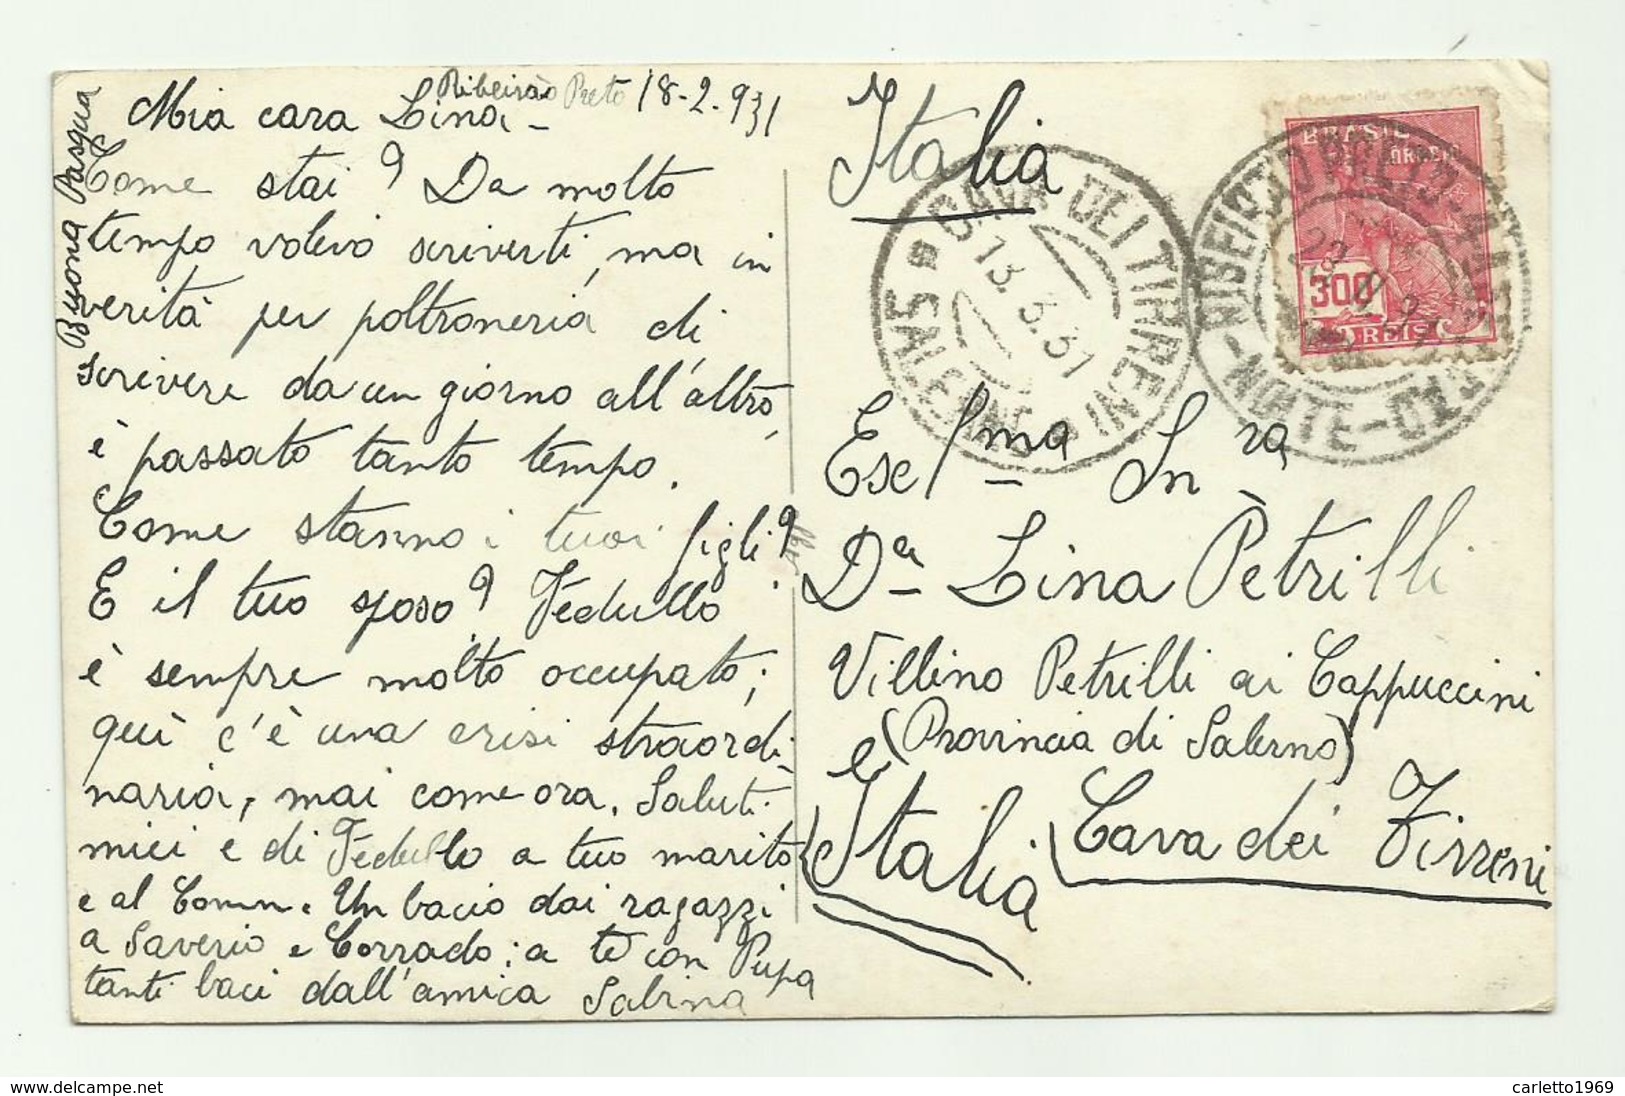 Ribeirão Preto 18-2-931
Mia cara Lina-
Come stai? Da molto
tempo volevo scriverti, ma in
verità per poltroneria di
scrivere da un giorno all'altro,
è passato tanto tempo.
Come stanno i tuoi figli?
E il tuo sposo? Fedullo
è sempre molto occupato;
quì c'è una crisi straordi-
naria, mai come ora. Saluti
miei e di Fedullo a tuo marito
e al Comm. Un bacio dai ragazzi
a Saverio e Corrado; a te con Pupa
tanti baci dall'amica Sabina
Buona Pasqua
Italia
BRASIL
CORREIO
300
REIS
CAVA DEI TIRRENI
13.3.31
(SALERNO)
RIBEIRÃO PRETO
NORTE
Ecc/ma Sn ra
Da Lina Pètrilli
Villino Petrilli ai Cappuccini
(Provincia di Salerno)
Cava dei Tirreni
Italia
delcampe.net
carletto1969